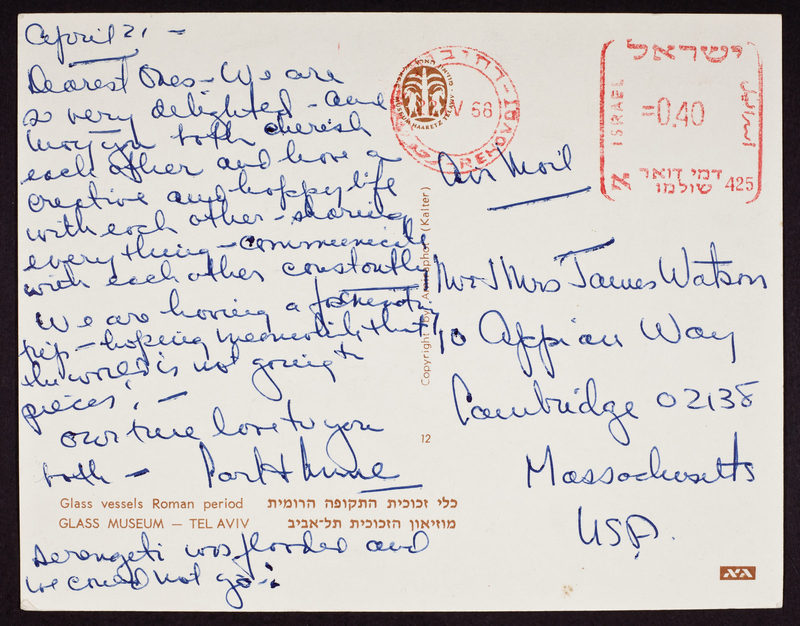 April 21 -
Dearest Ones - We are
so very delighted - and
may you both cherish
each other and have a
creative and happy life
with each other - sharing
everything - communicate
with each other constantly
We are having a
trip - hoping meanwhile that
the world is not going to
pieces, -
Our true love to you
both - &
Glass vessels Roman period
GLASS MUSEUM — TEL AVIV
כלי זכוכית התקופה הרומית
מוזיאון הזכוכית תל-אביב
Serengeti was flooded and
we could not go -
Copyright by Amiraphot (Kalter)
12
V 68
REHOVOT
ישראל
ISRAEL
اسرائيل
=0.40
דמי דואר
שולמו
א
425
Air Mail
Mr & Mrs James Watson
10 Appian Way
Cambridge 02138
Massachusetts
USA.